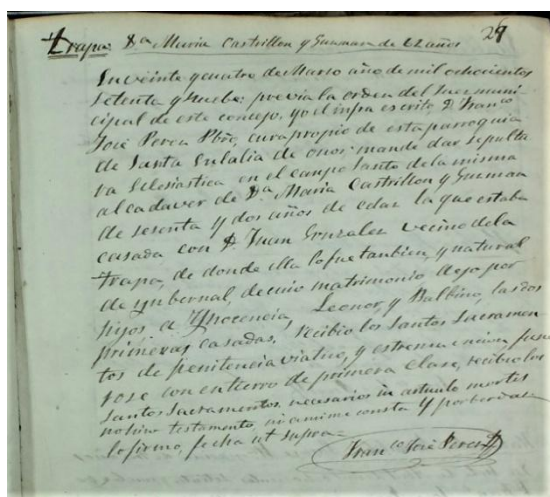 29
Trapa. Dª Maria Castrillon y Gusman de 62 años
En veinte y cuatro de Marso año de mil ochocientos
setenta y nuebe: previa la orden del Juez muni
cipal de este consejo, yo el infra escrito D. Franco
José Perez Pbro, cura propio de esta parroquia
de Santa Eulalia de Oscos: mandé dar sepultu
ra Eclesiastica en el canpo santo de la misma
al cadaver de Dª Maria Castrillon y Gusman
de sesenta y dos años de edad la que estaba
casada con D. Juan Gonzalez vecino de la
trapa, de donde ella lo fue tanbien, y natural
de ynbernal, de cuio matrimonio dejo por
hijos a Ynocencia, Leonor, y Balbino, las dos
primeras casadas, recibio los Santos Sacramen
tos de penitencia viatico, y estrema uncion
rose con entierro de primera clase, recibio los
santos Sacramentos necesarios in articulo mortes
no hiso testamento, ni a mi me consta y por verdad
lo firmo, fecha ut supra=
Franco José Perez